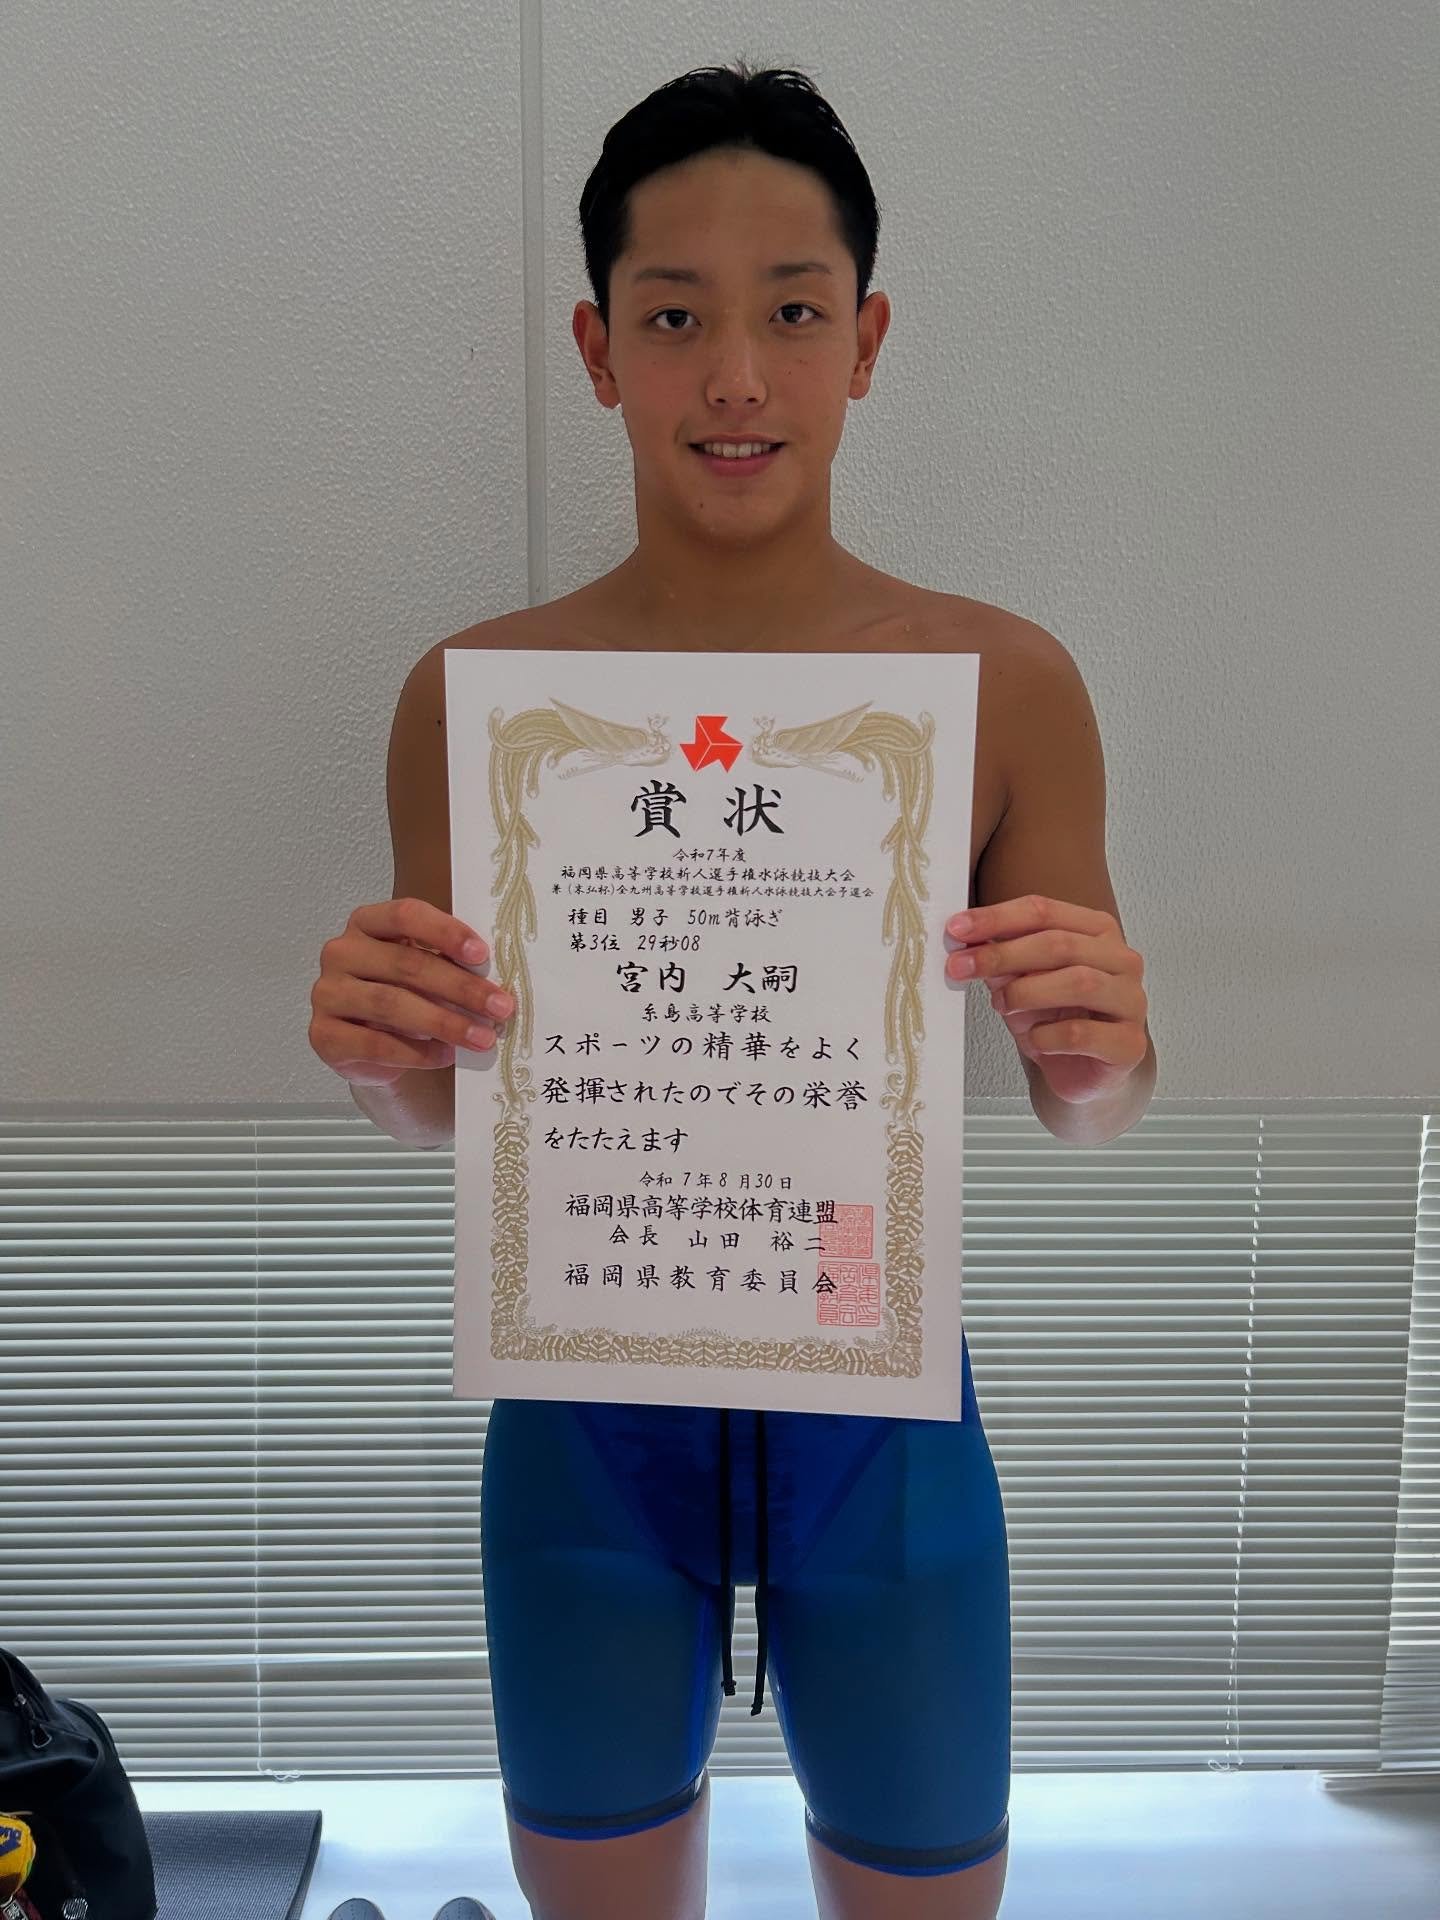 賞状
令和7年度
福岡県高等学校新人選手権水泳競技大会
兼(末弘杯)全九州高等学校選手権新人水泳競技大会予選会
種目 男子 50m背泳ぎ
第3位 29秒08
宮内 大嗣
糸島高等学校
スポーツの精華をよく
発揮されたのでその栄誉
をたたえます
令和7年8月30日
福岡県高等学校体育連盟
会長 山田 裕二
福岡県教育委員会